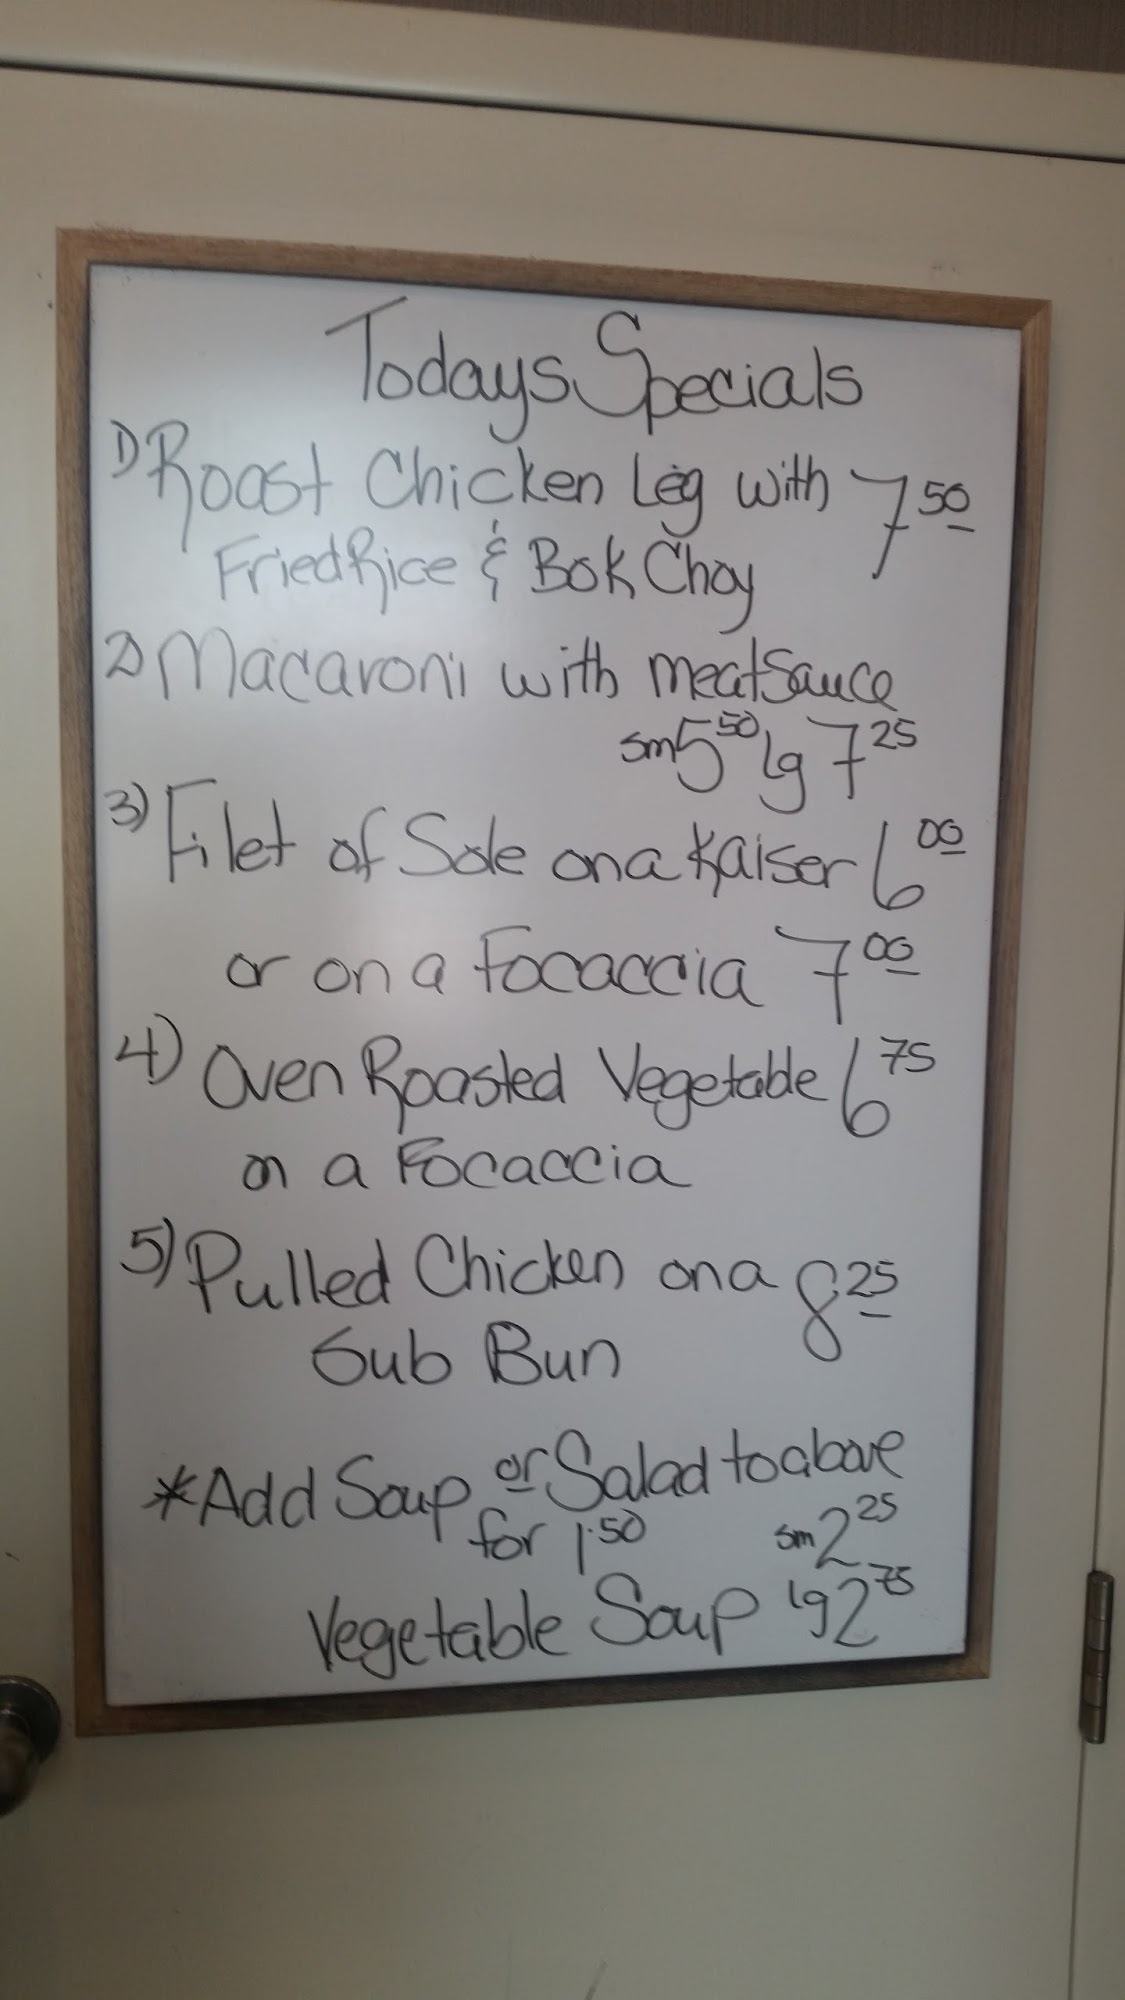 Todays Specials
1) Roast Chicken Leg with 7 50
Fried Rice & Bok Choy
2) Macaroni with meatSauce
sm 5 50 lg 7 25
3) Filet of Sole on a Kaiser 6 00
or on a Focaccia 7 00
4) Oven Roasted Vegetable 6 75
on a Focaccia
5) Pulled Chicken on a 8 25
Sub Bun
*Add Soup or Salad to above
for 1.50 sm 2 25
Vegetable Soup lg 2 75